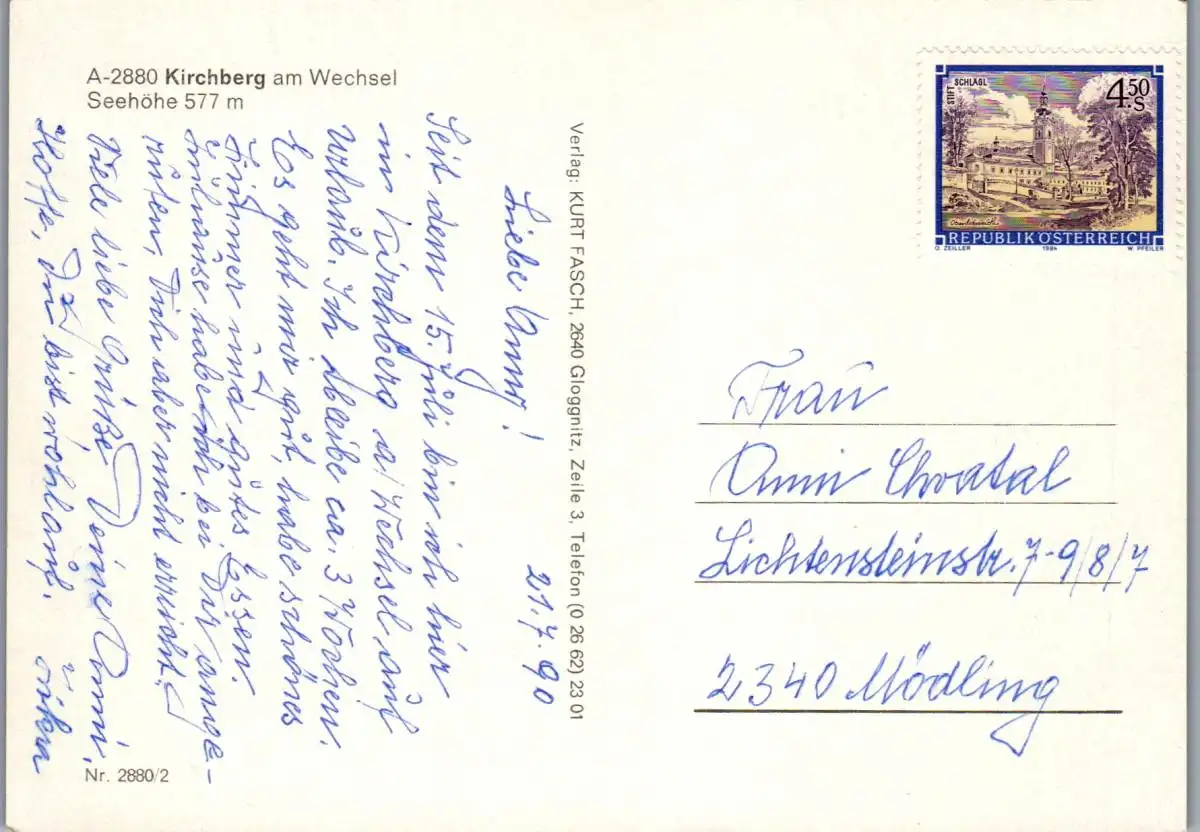 A-2880 Kirchberg am Wechsel
Seehöhe 577 m
21.7.90
Liebe Anny!
Seit dem 15. Juli bin ich hier
in Kirchberg a/Wechsel auf
Urlaub. Ich bleibe ca. 3 Wochen.
Es geht mir gut, habe schönes
Zimmer und gutes Essen.
zuhause habe ich bei Dir ange-
rufen, Dich aber nicht erreicht.
Viele liebe Grüße, Deine
Hoffe, Du bist wohlauf.
Nr. 2880/2
Verlag: KURT FASCH, 2640 Gloggnitz, Zeile 3, Telefon (0 26 62) 23 01
STIFT SCHLÄGL
4.50 S
REPUBLIK ÖSTERREICH
O. ZEILLER 1984 W. PFEILER
Frau
Anni Chvatal
Lichtensteinstr. 7-9/8/7
2340 Mödling